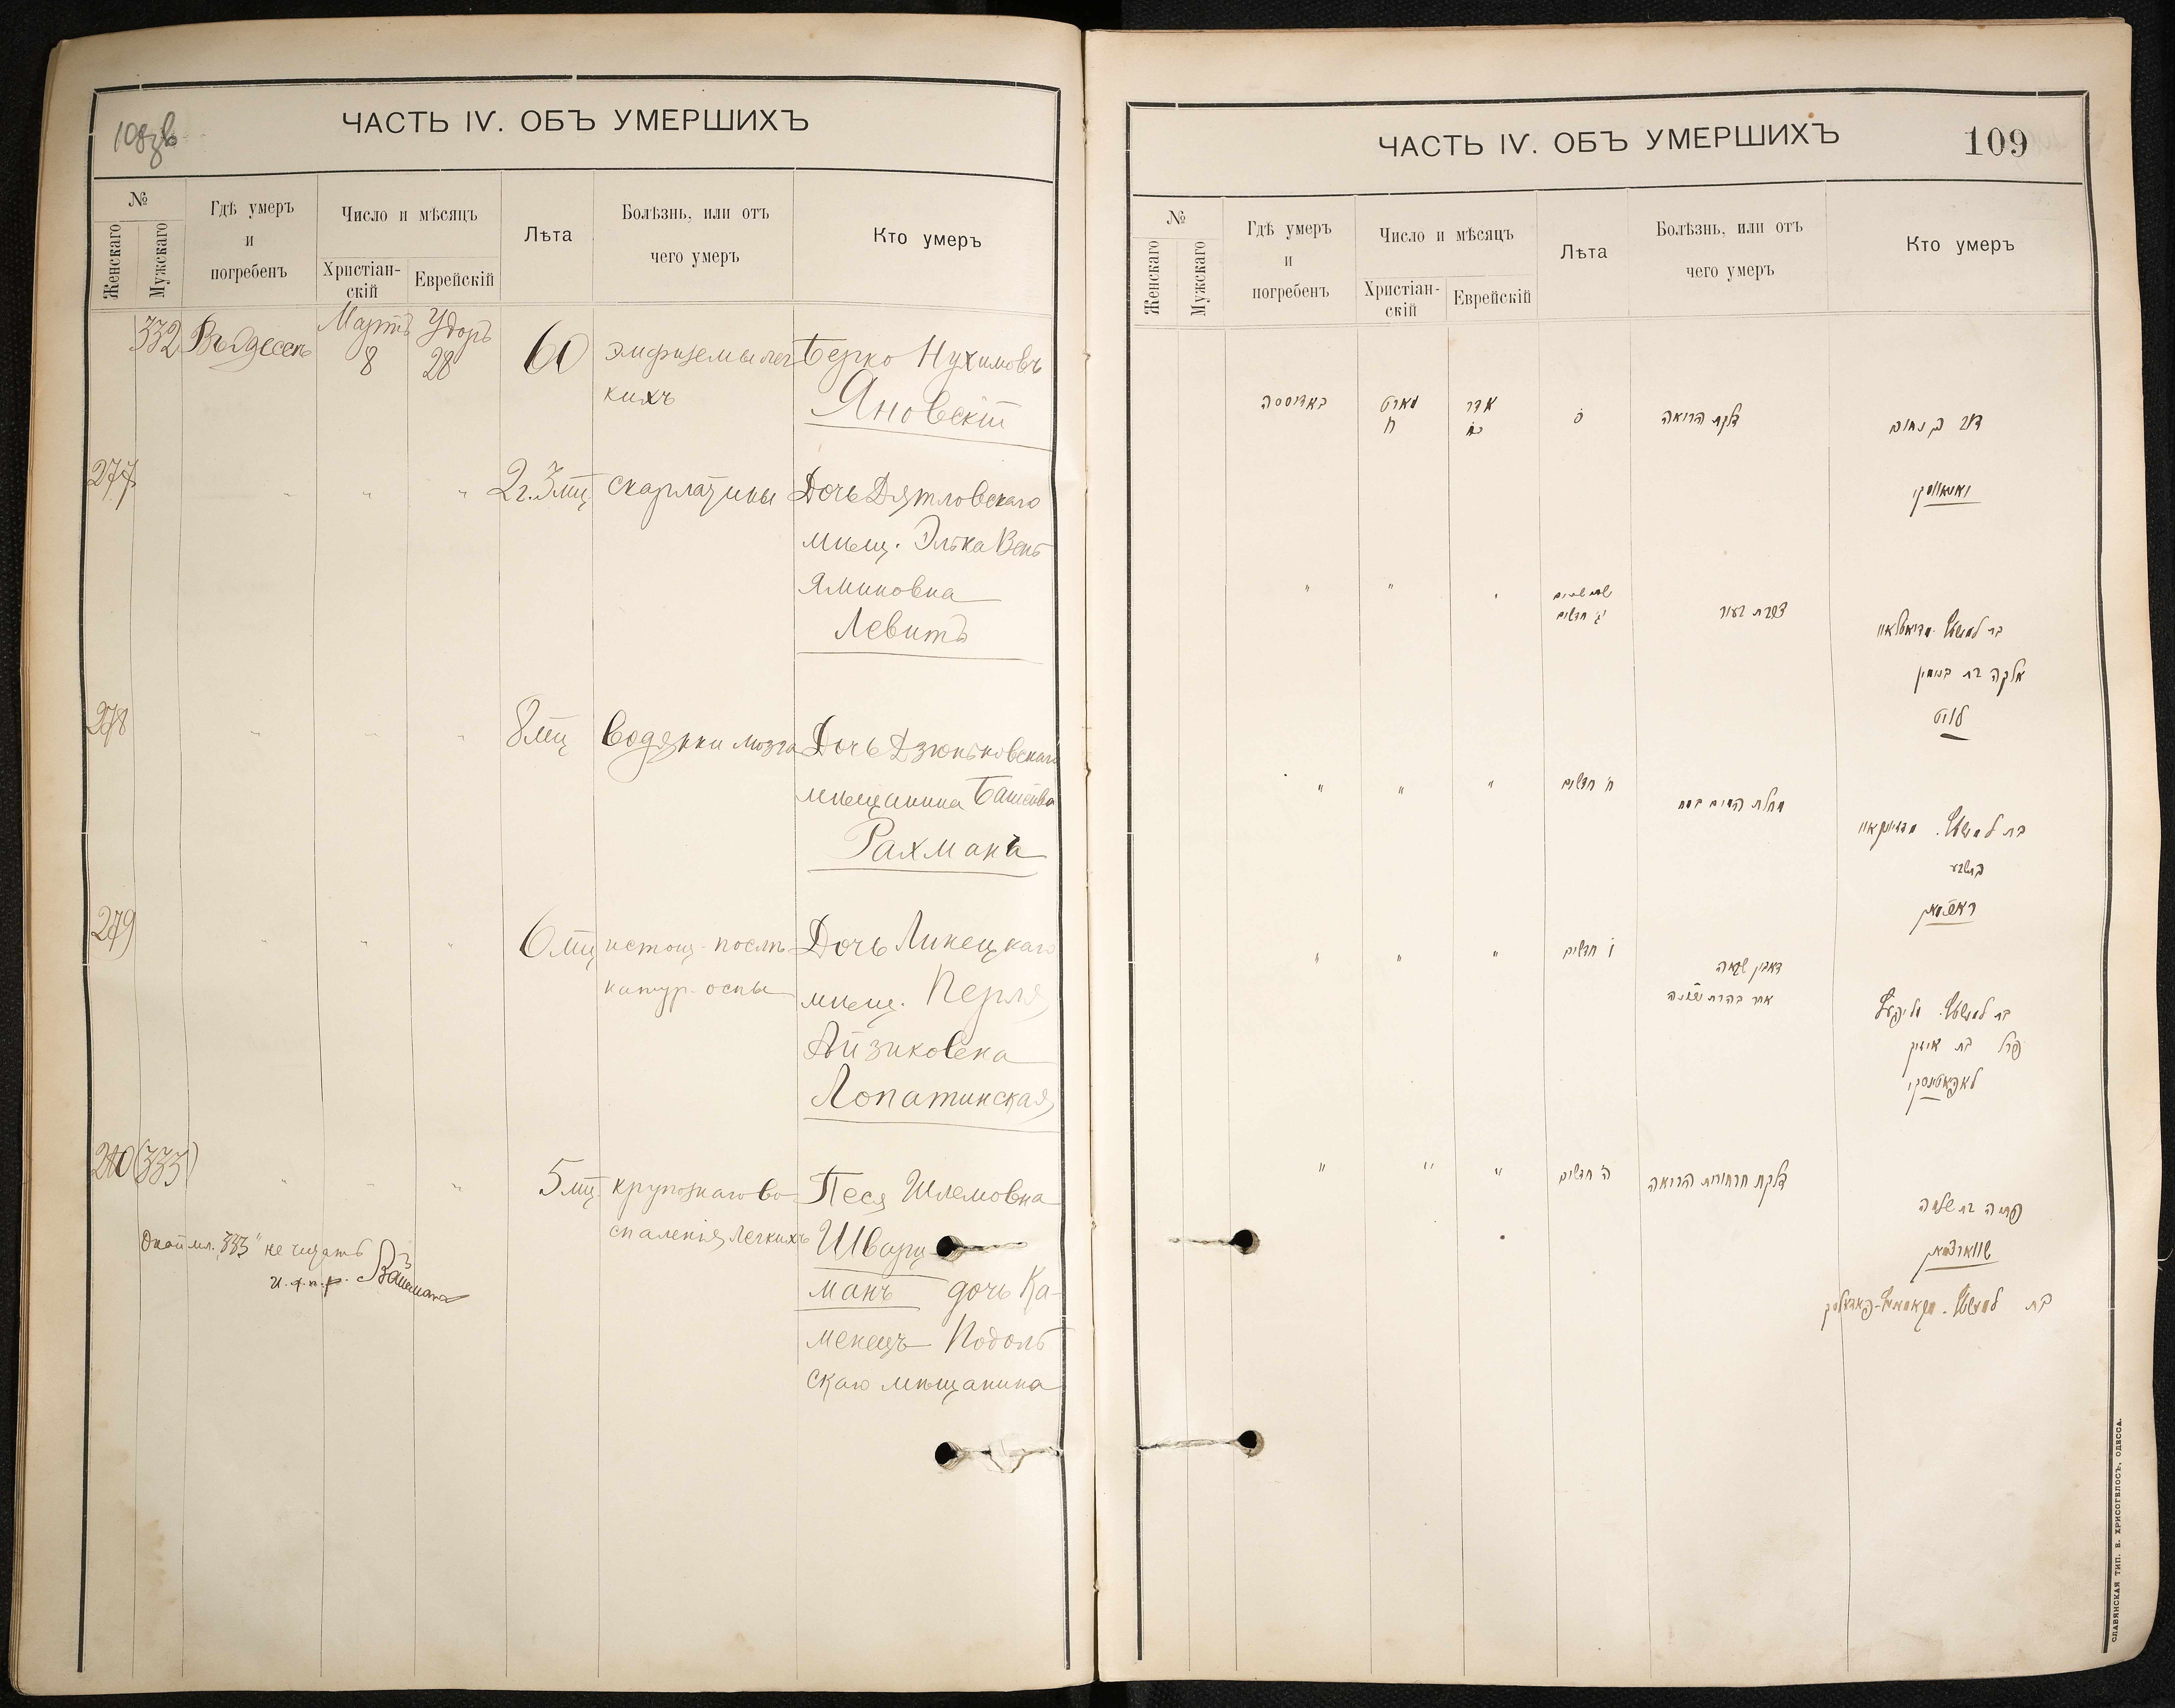 108 об
ЧАСТЬ IV. ОБЪ УМЕРШИХЪ
№
Женскаго
Мужскаго
Гдѣ умеръ
и
погребенъ
Число и мѣсяцъ
Христіан-
скій
Еврейскій
Лѣта
Болѣзнь, или отъ
чего умеръ
Кто умеръ
332 Въ Одессѣ Мартъ 8 Удоръ 28 60 эмфиземы лег
кихъ
Берко Нухимовъ
Яновскій
277 " " " 2 г. 3 мц скарлатины Дочь Дятловскаго
мѣщ. Элька Вень
яминовна
Левитъ
278 " " " 8 мц водянки мозга Дочь Дзюньковскаго
мѣщанина Башейва
Рахмана
279 " " " 6 мц истощ. послѣ
натур. оспы
Дочь Липецкаго
мѣщ. Перля
Айзиковна
Лопатинская
280 (333) " " " 5 мц. крупознаго во
спаленія легкихъ
Песя Шлемовна
Шварц
манъ дочь Ка-
менецъ Подоль
скаго мѣщанина
333" не читать
ЧАСТЬ IV. ОБЪ УМЕРШИХЪ
109
№
Женскаго
Мужскаго
Гдѣ умеръ
и
погребенъ
Число и мѣсяцъ
Христіан-
скій
Еврейскій
Лѣта
Болѣзнь, или отъ
чего умеръ
Кто умеръ
באדיססה מארט ח אדר כח ס דלקת הריאה
דוב בן נחום
יאנאווסקי
" " " שתי שנים
ג' חדשים
בת
אלקה בת בנימין
לוויט
" " " ח' חדשים מחלת המים במח
בת
בתשבע
ראחמאן
" " " ו' חדשים
בת
פרל בת אייזיק
לאפאטינסקי
" " " ה' חדשים דלקת הריאה
פסיה בת שלמה
שווארצמאן
בת
СЛАВЯНСКАЯ ТИП. Е. ХРИСОГЕЛОСЪ, ОДЕССА.